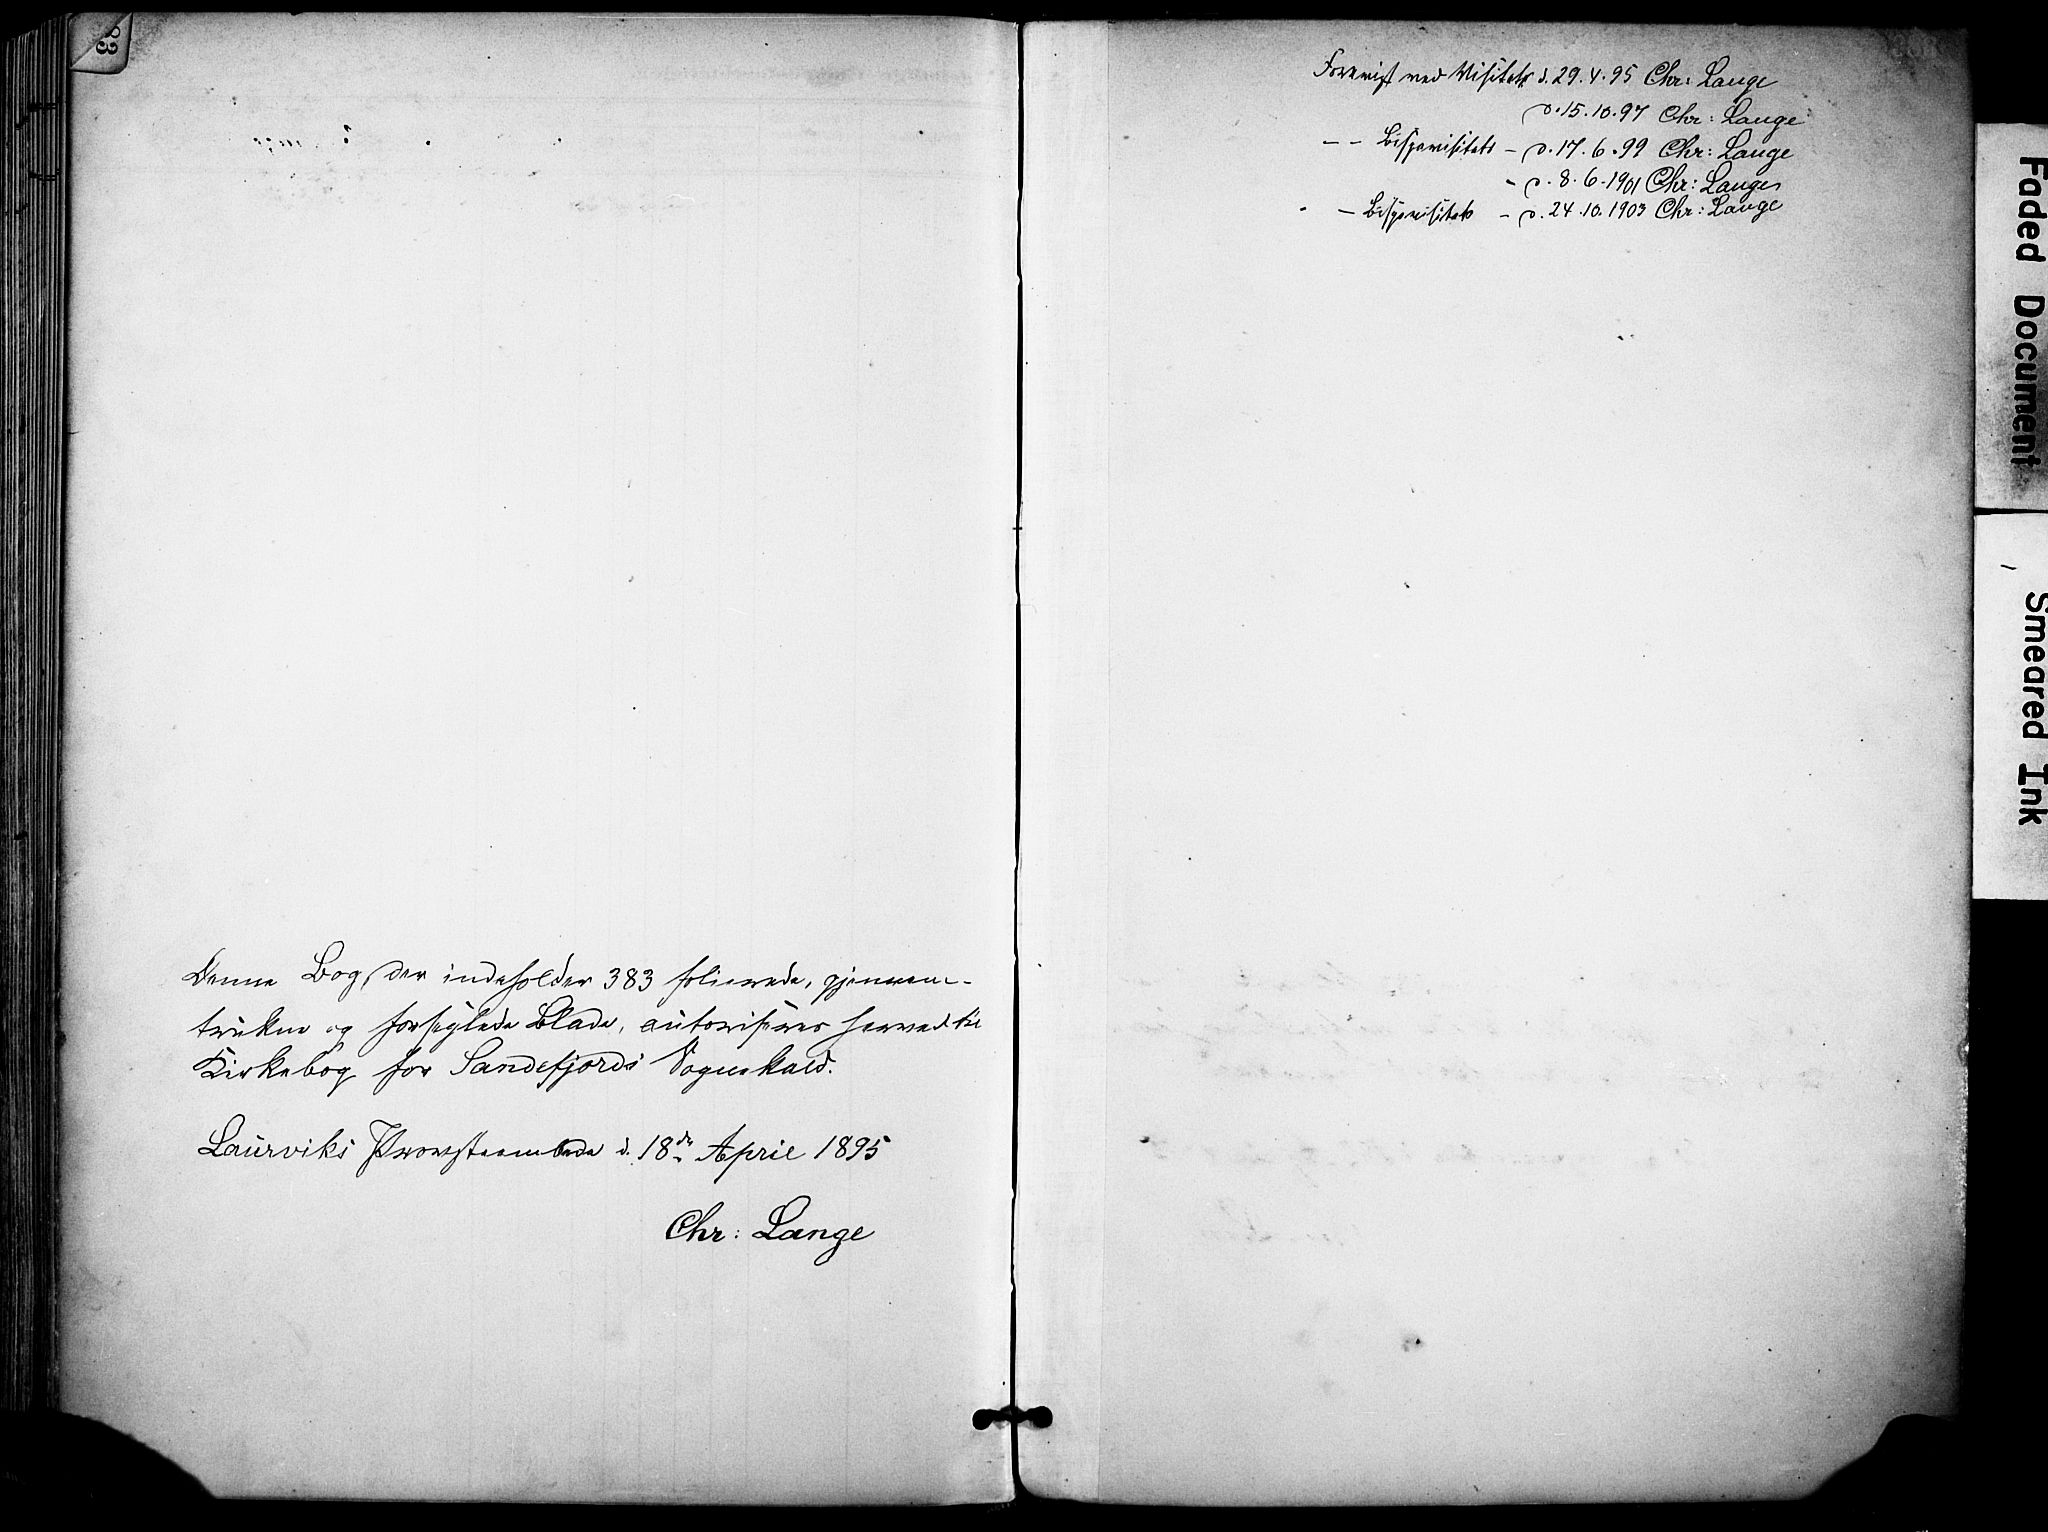 83
Denne Bog, der indeholder 383 folierede, gjennem-
trukne og forseglede Blade, autoriseres herved til
Kirkebog for Sandefjords Sognekald.
Laurviks Provsteembede d. 18de April 1895
Chr: Lange
Forevist ved Visitats d. 29.4.95 Chr: Lange
d. 15.10.97 Chr: Lange
- - Bispevisitats - d. 17.6.99 Chr: Lange
- d. 8.6.1901 Chr: Lange
- Bispevisitats - d. 24.10.1903 Chr: Lange
Faded Document
Smeared Ink